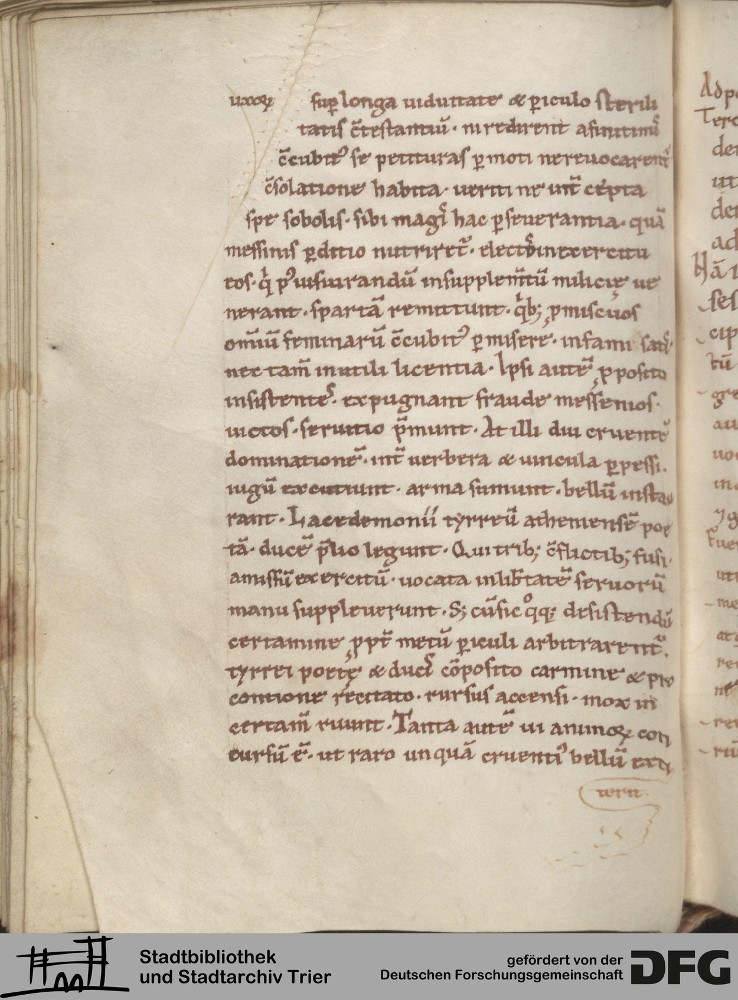 uxorꝝ sup̱ longa uiduitate & p̱iculo sterili
tatis c̄testantiū · ni redirent a finitimis
c̄cubitꝰ se petituras p̱moti ne reuocarent᷑
c̄solatione habita · ueriti ne int̄ cępta
spe sobolis · sibi magi hac p̱seuerantia · quā
messiniis p̱ditio nutriret᷑ · in exercitu
eos · qͥ pꝰ iusiurandū in supplem̄tū milicię ue
nerant · spartā remittunt · qͥbꝫ ꝓmiscuos
om̄iū feminarū c̄cubitꝰ p̱misere · infami
nec tam̄ inutili licentia · Ipsi autē ꝓposito
insistentes · expugnant fraude messenios ·
uictos · seruitio p̄munt · At illi diu cruentē
dominationē · int̄ uerbera & uincula p̱pessi ·
iugū excutiunt · arma sumunt · bellū instau
rant · Lacedemonii tyrreū atheniensē poe
tā · ducē p̄lio legunt · Qui tribꝫ c̄flictibꝫ fusi ·
amissū exercitū · uocata in lib̄tatē seruorū
manu suppleuerunt · Sꝫ cū sic qͦqꝫ desistendū
certamine ꝓpt̄ metū p̱iculi arbitrarent᷑ ·
tyrrei poetę & ducis cōposito carmine & pro
contione recitato · rursus accensi · mox in
certam̄ ruunt · Tanta autē ui animoꝝ con
cursū ē · ut raro unquā cruentiꝰ bellū exti
terit
Stadtbibliothek
und Stadtarchiv Trier
gefördert von der
Deutschen Forschungsgemeinschaft
DFG